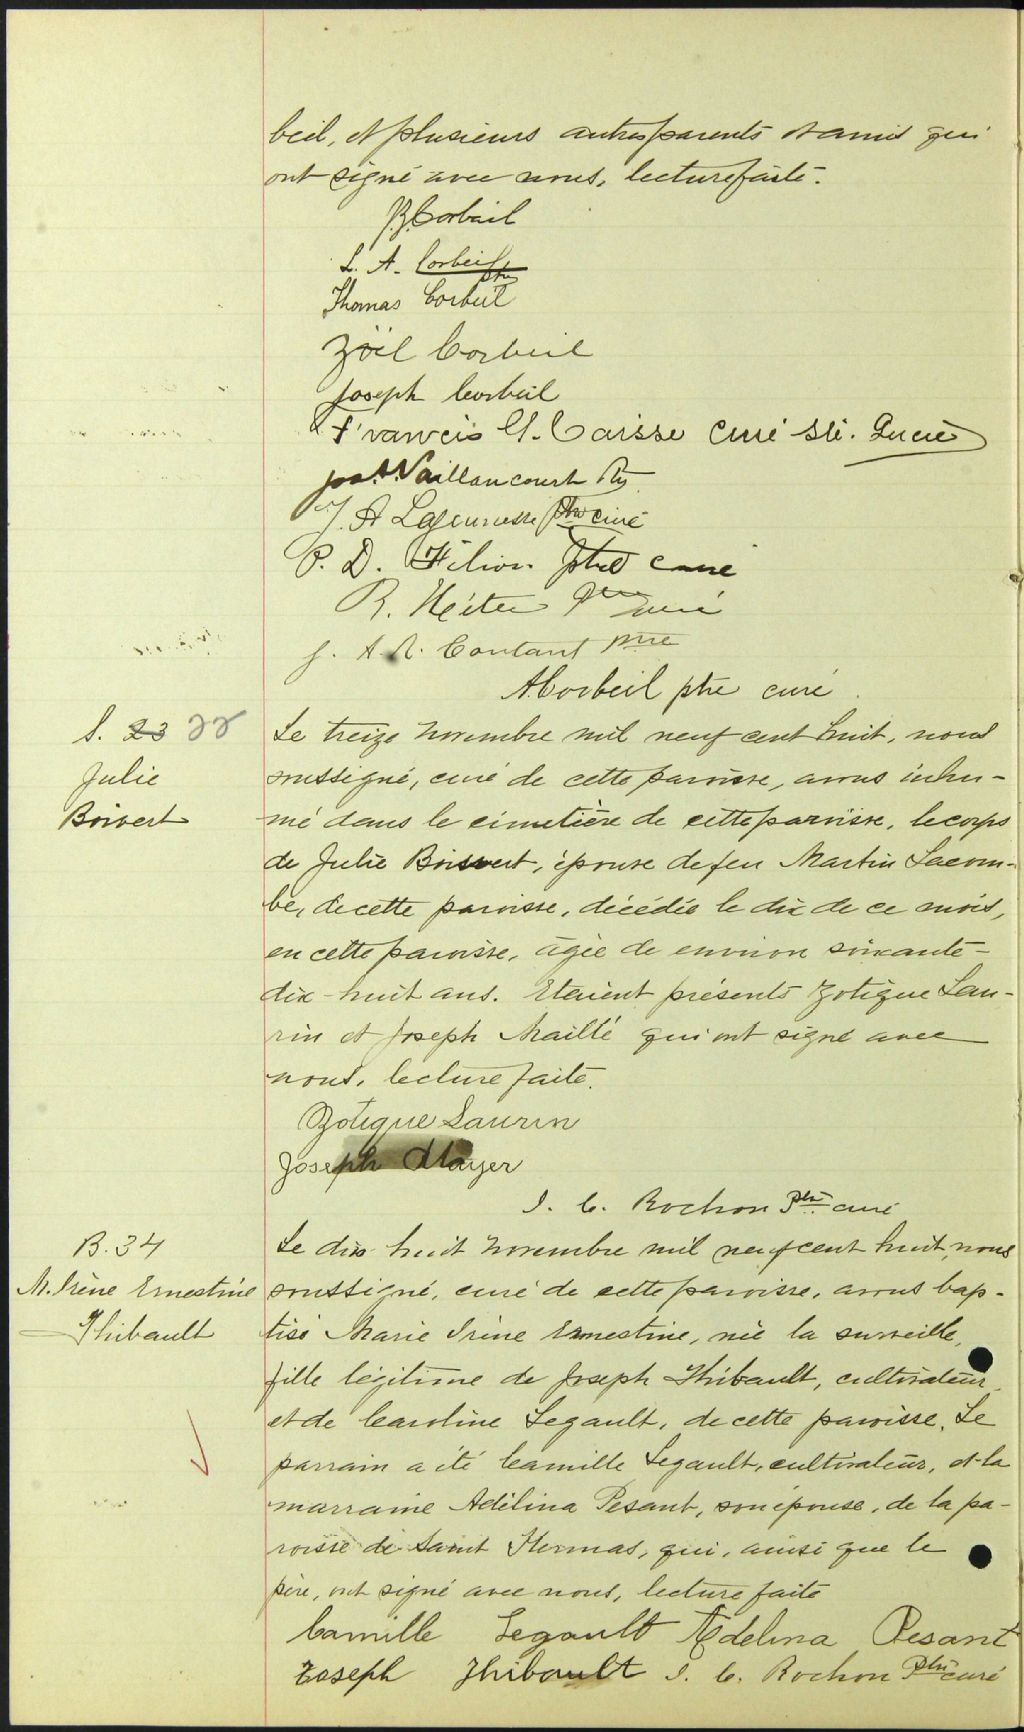 beil, et plusieurs autres parents et amis qui
ont signé avec nous, lecture faite.
JBCorbeil
L. A. Corbeil ptre
Thomas Corbeil
Zoël Corbeil
Joseph Corbeil
Francis Caisse curé Ste. Lucie
Vaillancourt Ptre
J. A Lajeunesse Ptre curé
P. D. Filion ptre curé
R. curé
J. A. R. Coutant ptre
A. Corbeil ptre curé.
S. 23 22
Julie
Boisvert
Le treize novembre mil neuf cent huit, nous
soussigné, curé de cette paroisse, avons inhu-
mé dans le cimetière de cette paroisse, le corps
de Julie Boisvert, épouse de feu Martin Lacom-
be, de cette paroisse, décédée le dix de ce mois,
en cette paroisse, âgée de environ soixante-
dix-huit ans. Etaient présents Zotique Lau-
rin et Joseph Maillé qui ont signé avec
nous, lecture faite.
Zotique Laurin
Joseph Mayer
J. C. Rochon Ptre curé
B. 34
M. Irène Ernestine
Thibault
Le dix-huit novembre mil neuf cent huit, nous
soussigné, curé de cette paroisse, avons bap-
tisé Marie Irène Ernestine, née la surveille,
fille légitime de Joseph Thibault, cultivateur,
et de Caroline Legault, de cette paroisse. Le
parrain a été Camille Legault, cultivateur, et la
marraine Adélina Pesant, son épouse, de la pa-
roisse de Saint Hermas, qui, ainsi que le
père, ont signé avec nous, lecture faite
Camille Legault Adelina Pesant
Joseph Thibault J. C. Rochon Ptre curé